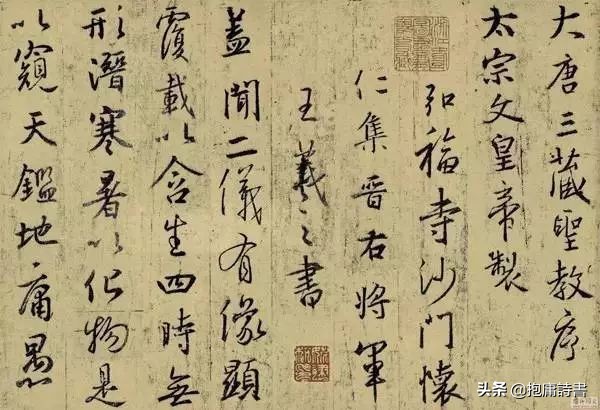 大唐三藏聖教序
太宗文皇帝製
弘福寺沙門懷
仁集晉右將軍
王羲之書
蓋聞二儀有像顯
覆載以含生四時無
形潛寒暑以化物是
以窺天鑑地庸愚
头条 @抱庸詩書